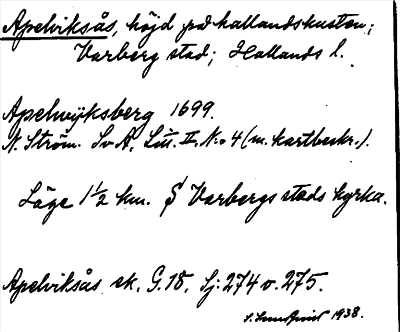 Apelviksås, höjd på hallandskusten;
Varberg stad; Hallands l.
Apelwijksberg 1699.
N. Ström. Sv A, Litt. II. N:o 4 (m. kartbeskr.).
Läge 1 1/2 km. S Varbergs stads kyrka.
Apelviksås ek. G. 18, Sj: 274 o. 275.
1938.